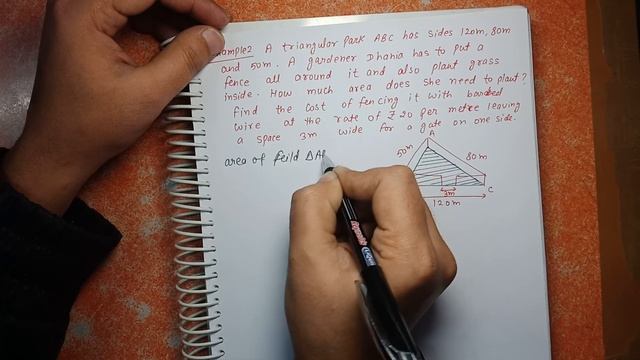 ample2 A triangular Park ABC has sides 120m, 80m
and 50m. A gardener Dhania has to put a
fence all around it and also plant grass
inside. How much area does she need to plant?
Find the cost of fencing it with barabed
wire at the rate of ₹20 per metre leaving
a space 3m wide for a gate on one side.
A
50m
80m
area of feild ΔA
3m
C
120m